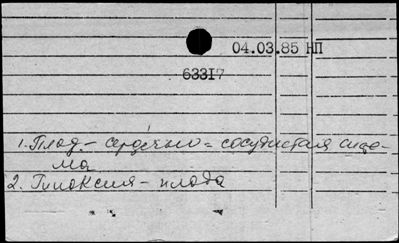 04.03.85 НП
63317
1. Плод - сердечно = сосудистая систе-
ма
2. Гипоксия - плода